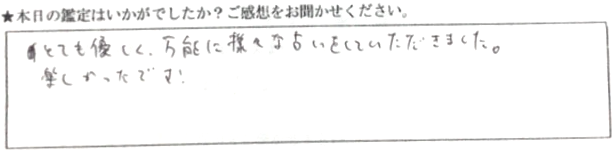 ★本日の鑑定はいかがでしたか？ご感想をお聞かせください。
とても優しく、万能に様々な占いをしていただきました。
楽しかったです!